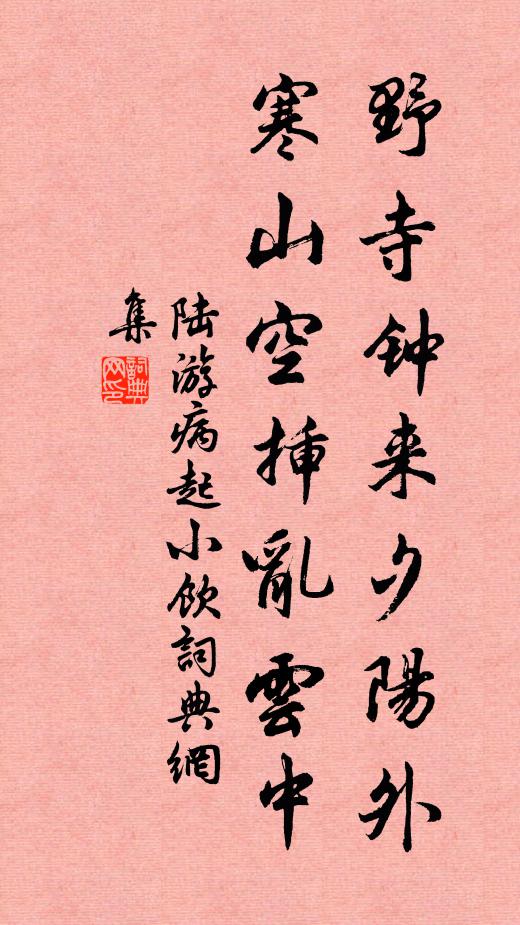 野寺钟来夕陽外
寒山空挿亂雲中
陆游病起小飲詞典網
集
詞典網印